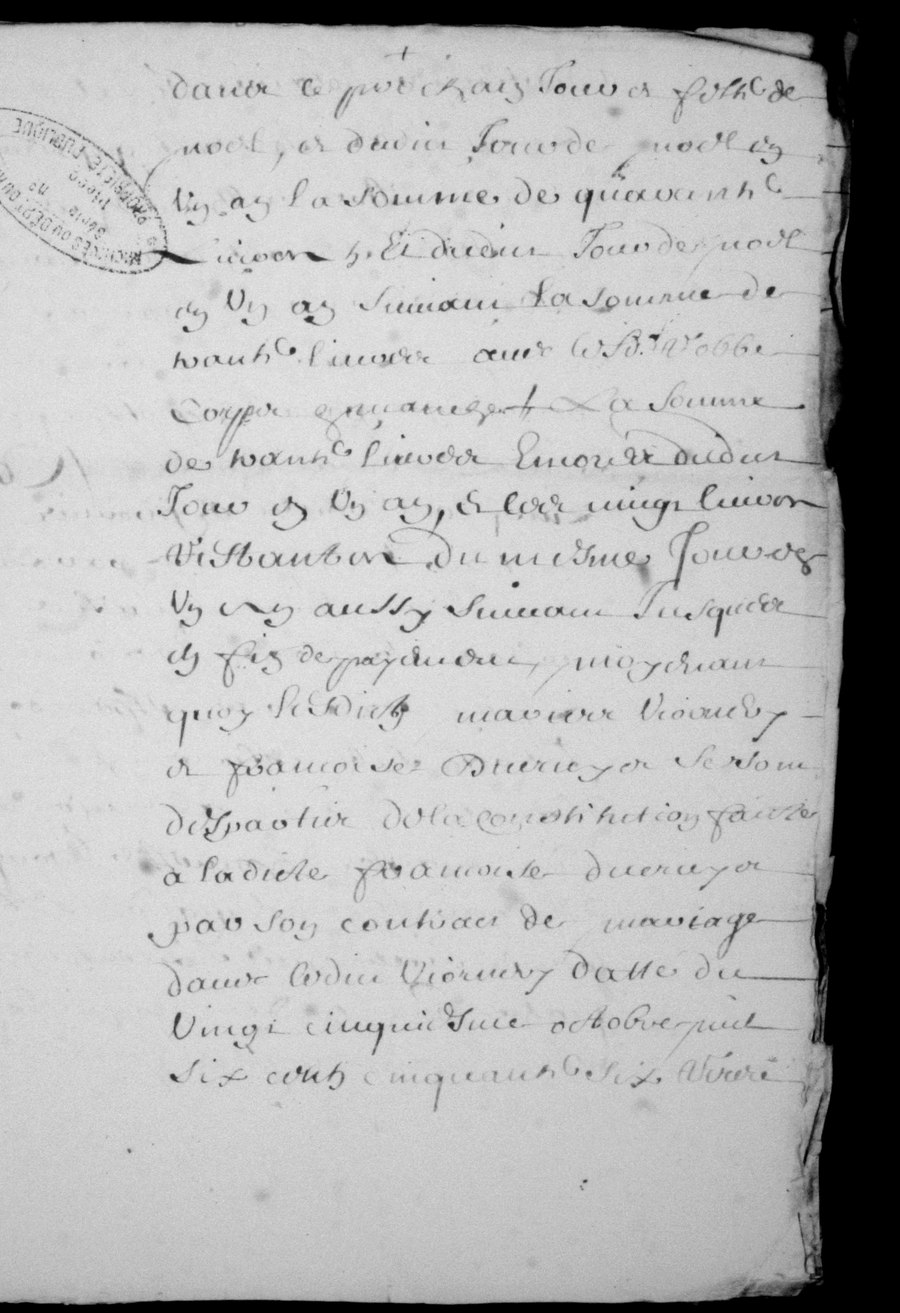 dans le prochain Jour et feste de
noel, et dudit Jour de noel en
Un an la Somme de quarante
Livres, Et dudit Jour de noel
en Un an Suivant La Somme de
trante livres
La Somme
de trante livres Encores dudit
Jour en Un an, et les vingt livres
restantes du mesme Jour en
Un An aussy Suivant Jusques
en fin de payement, moyenant
quoy lesdits mariez
et francoise se sont
despartis de la constitution faicte
a ladicte francoise
par son contract de mariage
dans ledit datte du
Vingt cinquiesme octobre mil
six cents cinquante six
ARCHIVES DU DÉPT DU
Série
No
Pièce
PROPRIÉTÉ PUBLIQUE